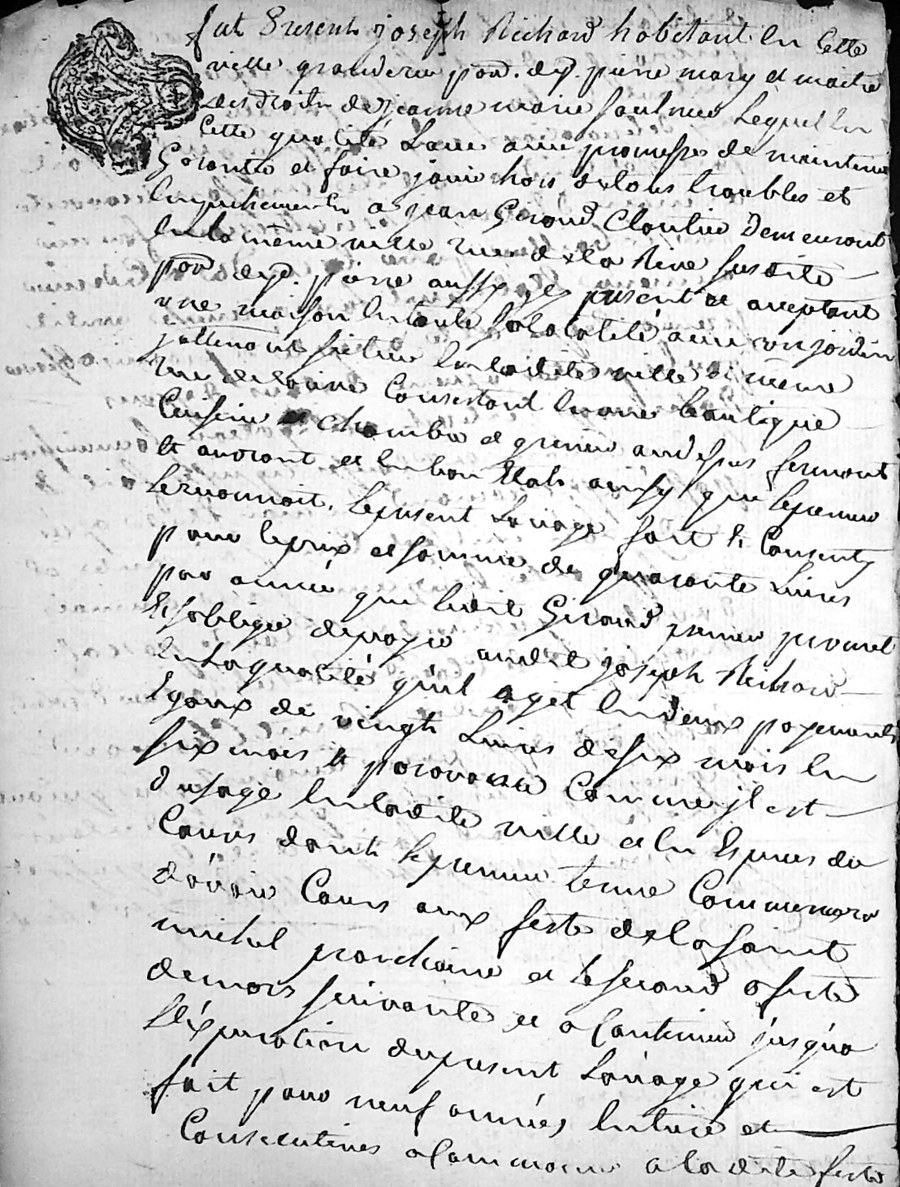 fut Present joseph Richard habitant En Cette
ville grande rue par. de St. pierre mary et maitre
des droits de jeanne marie faulnier Lequel En
Cette qualité Loue avec promesse de maintenir
Garantir et faire jouir hors de tous troubles et
Empechements a jean Girard Cloutier Demeurant
En la même ville rue de la Reine susdite
par. de St. pierre aussy present et aceptant
une maison En toute sa totalité avec un jardin
jattenant scitué En ladite ville et même
rue de la Consistant En une boutique
Cuisine chambre et grenier au dessus fermant
et ouvrant et En bon Etat ainsy que le preneur
le reconnoit, Le present Louage fait et Consenty
pour le prix et somme de quarante Livres
par année que ledit Girard preneur promet
Et sôblige de payer audit joseph Richard
En sa qualité qu'il agit En deux payements
Egaux de vingt Livres de six mois En
six mois et par avance Comme jl est
d'usage En ladite ville et En Espèces de
Cours dont le premier terme Commencera
d'avoir Cours aux feste de la saint
michel prochaine et le second a feste
de suivante et a Continuer jusqu'a
l'éxpiration du present Loüage qui est
fait pour neuf années Entiere et
Consecutives a Commencer a la dite feste